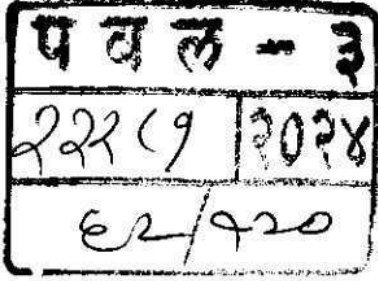 पवल - ३
२२२८१ २०२४
६२/१२०